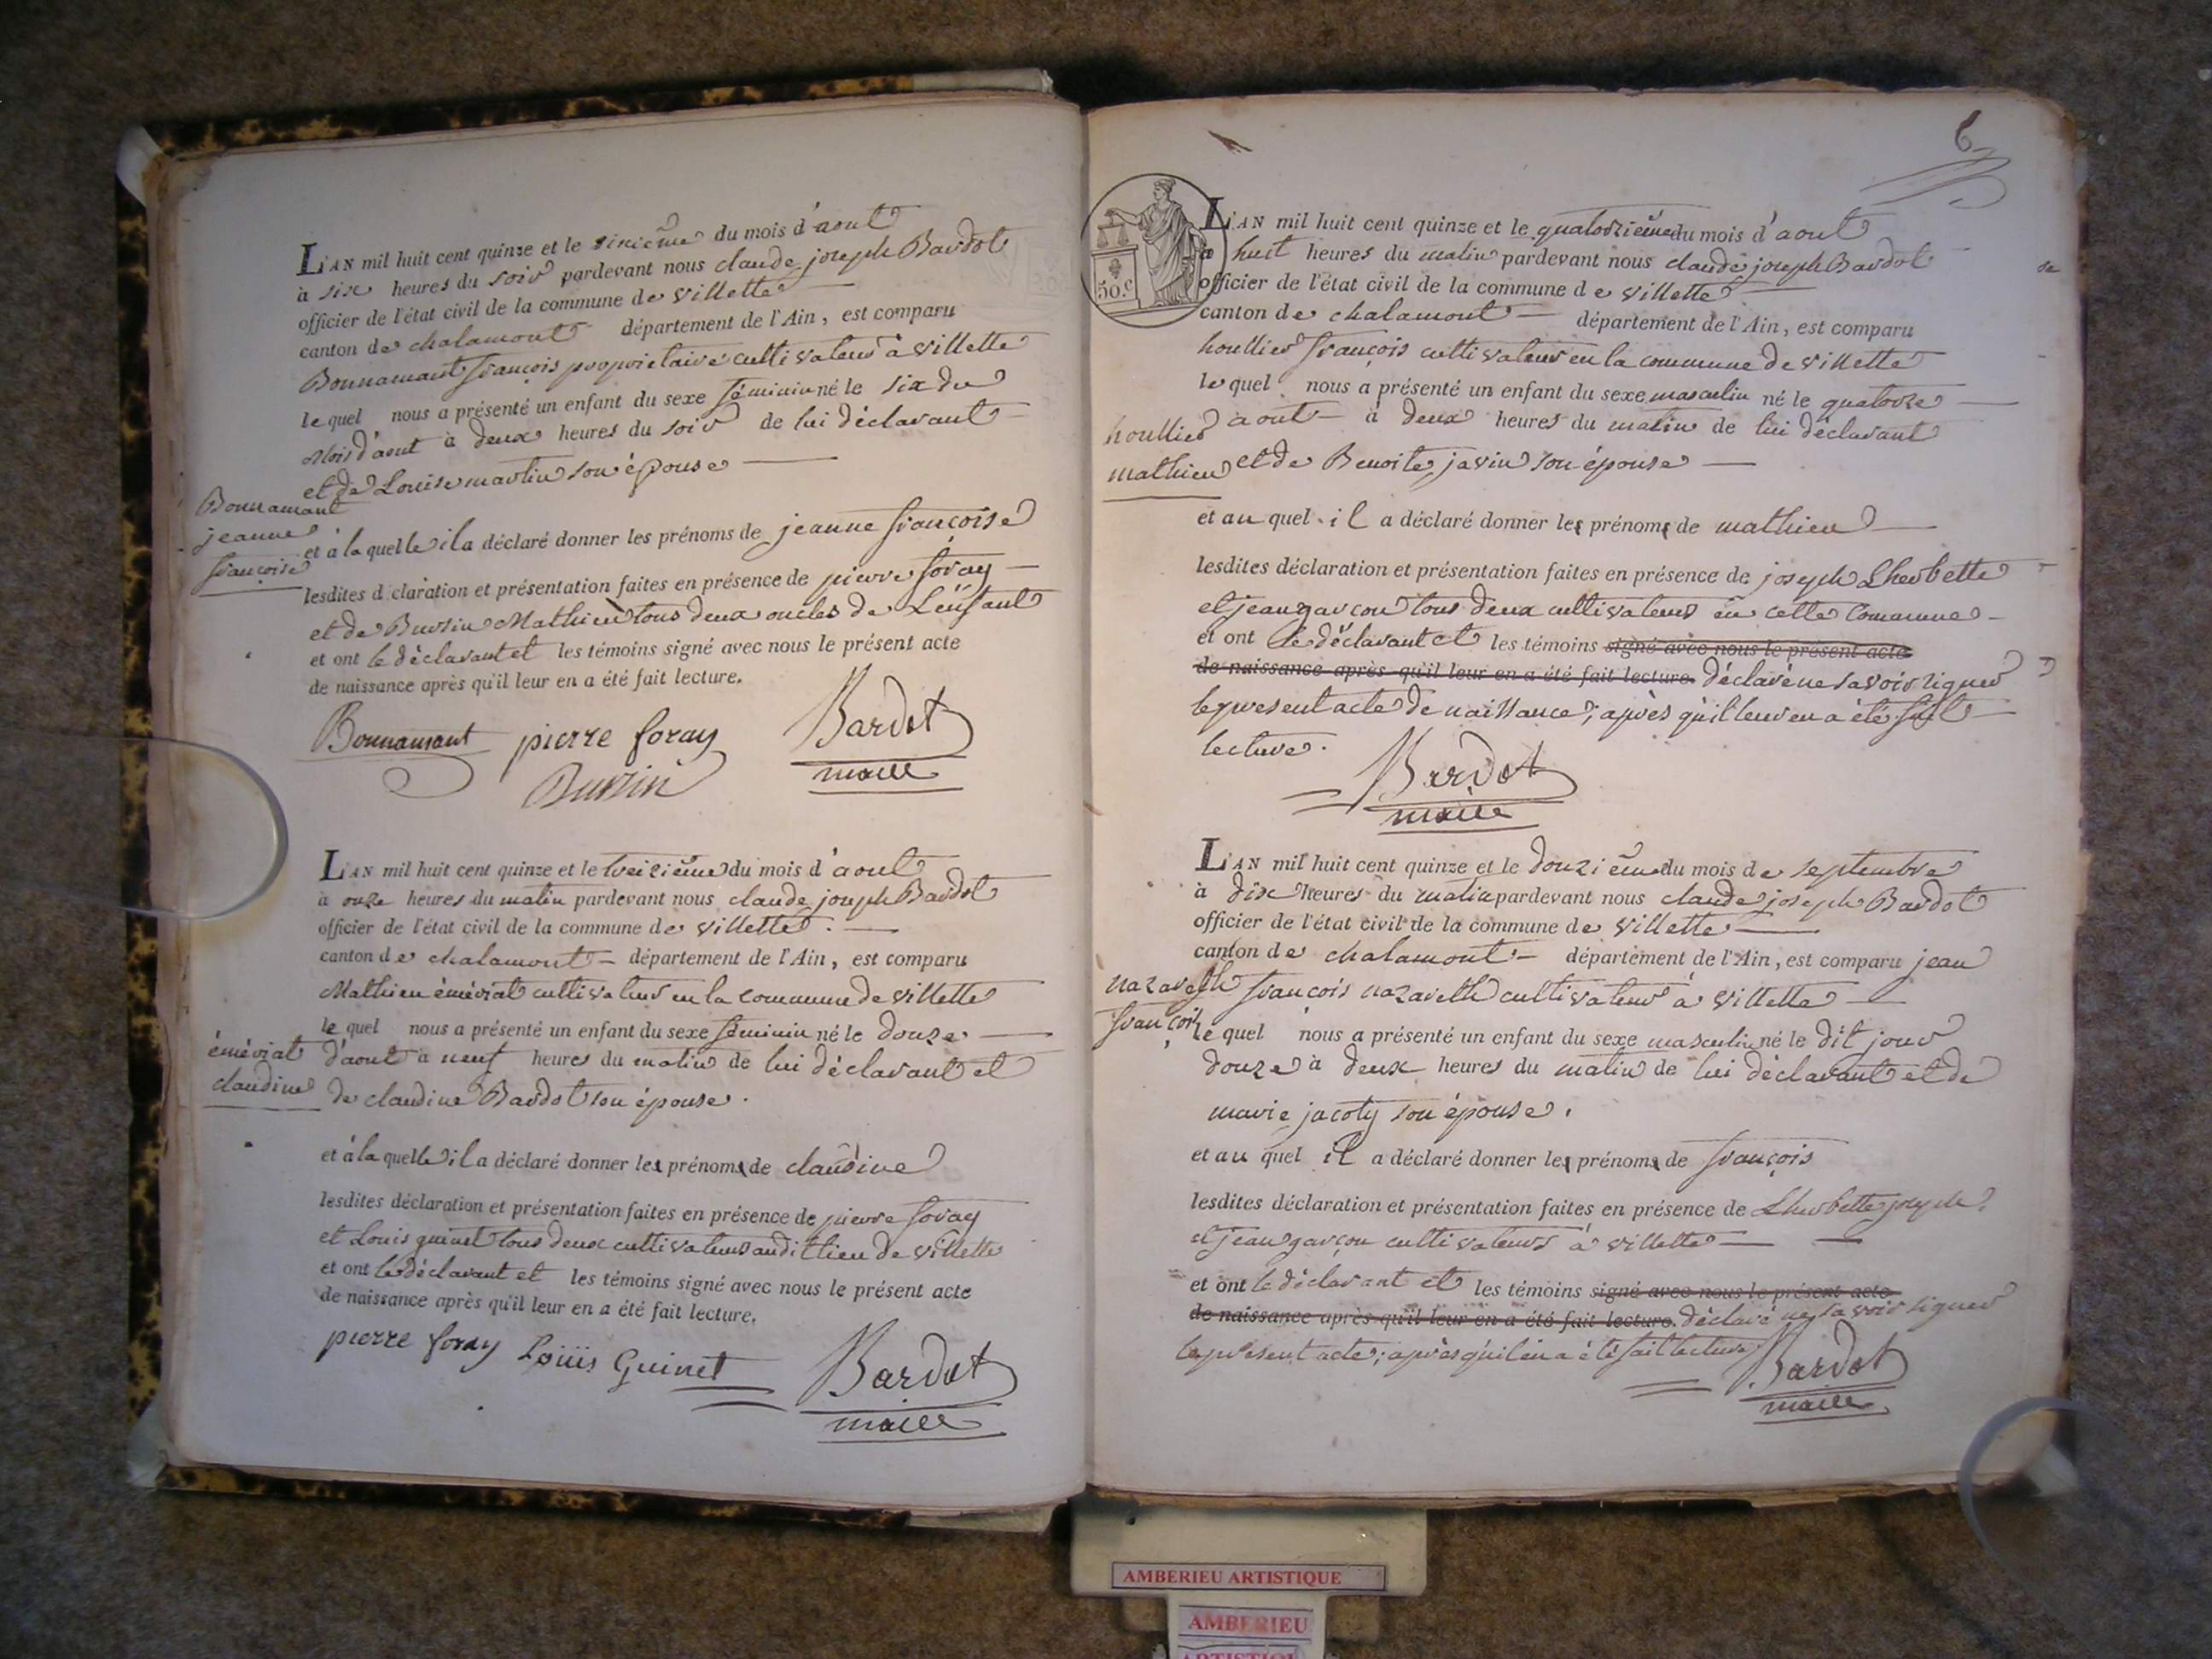 L'AN mil huit cent quinze et le sixième du mois d'aout
à six heures du soir pardevant nous claude joseph Bardot
officier de l'état civil de la commune de villette
canton de chalamont département de l'Ain, est comparu
Bonnamant françois proprietaire cultivateur à villette
lequel nous a présenté un enfant du sexe féminin né le six du
mois d'aout à deux heures du soir de lui déclarant
et de Louise martin son épouse
Bonnamant
jeanne
françoise
et à la quelle il a déclaré donner les prénoms de jeanne françoise
lesdites déclaration et présentation faites en présence de pierre foray
et de Bursin Mathieu tous deux oncles de Lenfant
et ont le déclarant et les témoins signé avec nous le présent acte
de naissance après qu'il leur en a été fait lecture.
Bonnamant pierre foray Bardot
Bursin maire
L'AN mil huit cent quinze et le treizième du mois d'aout
à onze heures du matin pardevant nous claude joseph Bardot
officier de l'état civil de la commune de villette.
canton de chalamont département de l'Ain, est comparu
Mathieu émériat cultivateur en la commune de villette
le quel nous a présenté un enfant du sexe féminin né le douze
émériat
claudine
d'aout à neuf heures du matin de lui déclarant et
de claudine Bardot son épouse.
et à la quelle il a déclaré donner les prénoms de claudine
lesdites déclaration et présentation faites en présence de pierre foray
et Louis guinet tous deux cultivateurs audit lieu de villette
et ont le déclarant et les témoins signé avec nous le présent acte
de naissance après qu'il leur en a été fait lecture.
pierre foray Loüis Guinet Bardot
maire
6
50.c
L'AN mil huit cent quinze et le quatorzième du mois d'aout
à huit heures du matin pardevant nous claude joseph Bardot
officier de l'état civil de la commune de villette
canton de chalamont département de l'Ain, est comparu
houllier françois cultivateur en la commune de villette
le quel nous a présenté un enfant du sexe masculin né le quatorze
houllier
mathieu
aout à deux heures du matin de lui déclarant
et de Benoite javin son épouse
et au quel il a déclaré donner les prénoms de mathieu
lesdites déclaration et présentation faites en présence de joseph Lherbette
et jean garçon tous deux cultivateurs en cette commune
et ont le déclarant et les témoins signé avec nous le présent acte
de naissance après qu'il leur en a été fait lecture. déclaré ne savoir signer
le present acte de naissance; après qu'il leur en a été fait
lecture.
Bardot
maire
L'AN mil huit cent quinze et le douzième du mois de septembre
à dix heures du matin pardevant nous claude joseph Bardot
officier de l'état civil de la commune de villette
canton de chalamont département de l'Ain, est comparu jean
nazareth
françois
françois nazareth cultivateur à villette
le quel nous a présenté un enfant du sexe masculin né le dit jour
douze à deux heures du matin de lui déclarant et de
marie jacoty son épouse.
et au quel il a déclaré donner les prénoms de françois
lesdites déclaration et présentation faites en présence de Lherbette joseph
et jean garçon cultivateurs à villette
et ont le déclarant et les témoins signé avec nous le présent acte
de naissance après qu'il leur en a été fait lecture. déclaré ne savoir signer
le present acte; après qu'il en a été fait lecture
Bardot
maire
AMBERIEU ARTISTIQUE
AMBERIEU
ARTISTIQUE